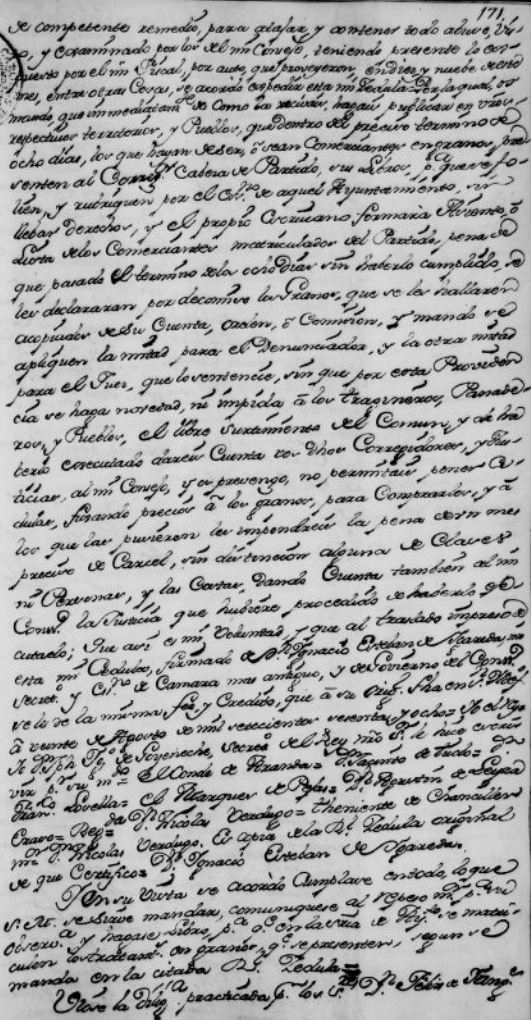 171
de competente remedio, para atajar, y contener todo abuso, Vis
to, y examinado por los del mi Consejo, teniendo presente lo ex
puesto por el mi Fiscal, por auto, que proveyeron, en diez, y nuebe de este
mes, entre otras Cosas, se acordó expedir esta mi Cedula: Por la qual, os
mando, que inmediatamte. de como la recivais, hagais publicar en vros.
respectivos territorios, y Pueblos, que dentro del preciso termino de
ocho dias, los que hayan de ser, ó sean Comerciantes en granos, pre
senten al Corregr. Cabeza de Partido, sus Libros, pa. que se fo
lien, y rubriquen por el Esno. de aquel Ayuntamiento, sin
llebar derechos, y el propio Escrivano formara Asiento, ó
Lista de los Comerciantes matriculados del Partido, pena de
que pasado el termino de los ocho dias sin haberlo cumplido, se
les declararan por decomiso los Granos, que se les hallaren
acopiados de su Cuenta, ó Comision, y mando se
apliquen la mitad para el Denunciador, y la otra mitad
para el Juez, que lo sentencie, sin que por esta Providen
cia se haga novedad, ni impida á los tragineros, Panade
ros, y Pueblos, el libre surtimiento del Comun, y de ha
berlo executado dareis Cuenta vos dhos Corregidores, y Jus
ticias, al mi Consejo, y os prevengo, no permitais poner Ce
dulas, fixando precios á los granos, para Comprarlos, y á
los que las pusieren les impondreis la pena de un mes
preciso de Carcel, sin distincion alguna de Clases
ni Personas, y las Costas, dando Cuenta tambien al mi
Consº. la Justicia que hubiere procedido de haberlo exe
cutado; Que asi es mi Voluntad, y que al traslado impreso de
esta mi Cedula, firmado de Dn. Ignacio Esteban de Igareda, mi
Secretº. y Esno. de Camara mas antiguo, y de Govierno del Consº.
se le dé la misma fee, y Credito, que á su Orig. Fha en Sn. Ildefº.
á veinte de Agosto de mil setecientos sesenta, y ocho= Yo el Rey=
Yo Dn. Jph. Igº. de Goyeneche, Secretº. del Rey nro Sr. le hice escri
vir pr. su mdo= El Conde de Aranda= Dn. Jacinto de Tudó= Dn.
Franco. Losella= El Marques de Dn. Agustin de Leyza
Eraso= Reg= da Dn. Nicolas Verdugo= theniente de Chanciller
mr. Dn. Nicolas Verdugo. Es copia de la Rl. Zedula original
de que Certifico= Dn. Ignacio Esteban de Igareda.
Y en su Vista se acordó Cumplase en todo, lo que
S. M. se sirve mandar, comuniquese al pa. su
observa. y hagase Libro, pa. qe. en la sria de Aytº. se matri
culen los tratantes en granos, qe. se presenten, segun se
manda en la citada Rl. Zedula=
Viose la Dilig.a practicada pr. los Sres. Dn. Felix de